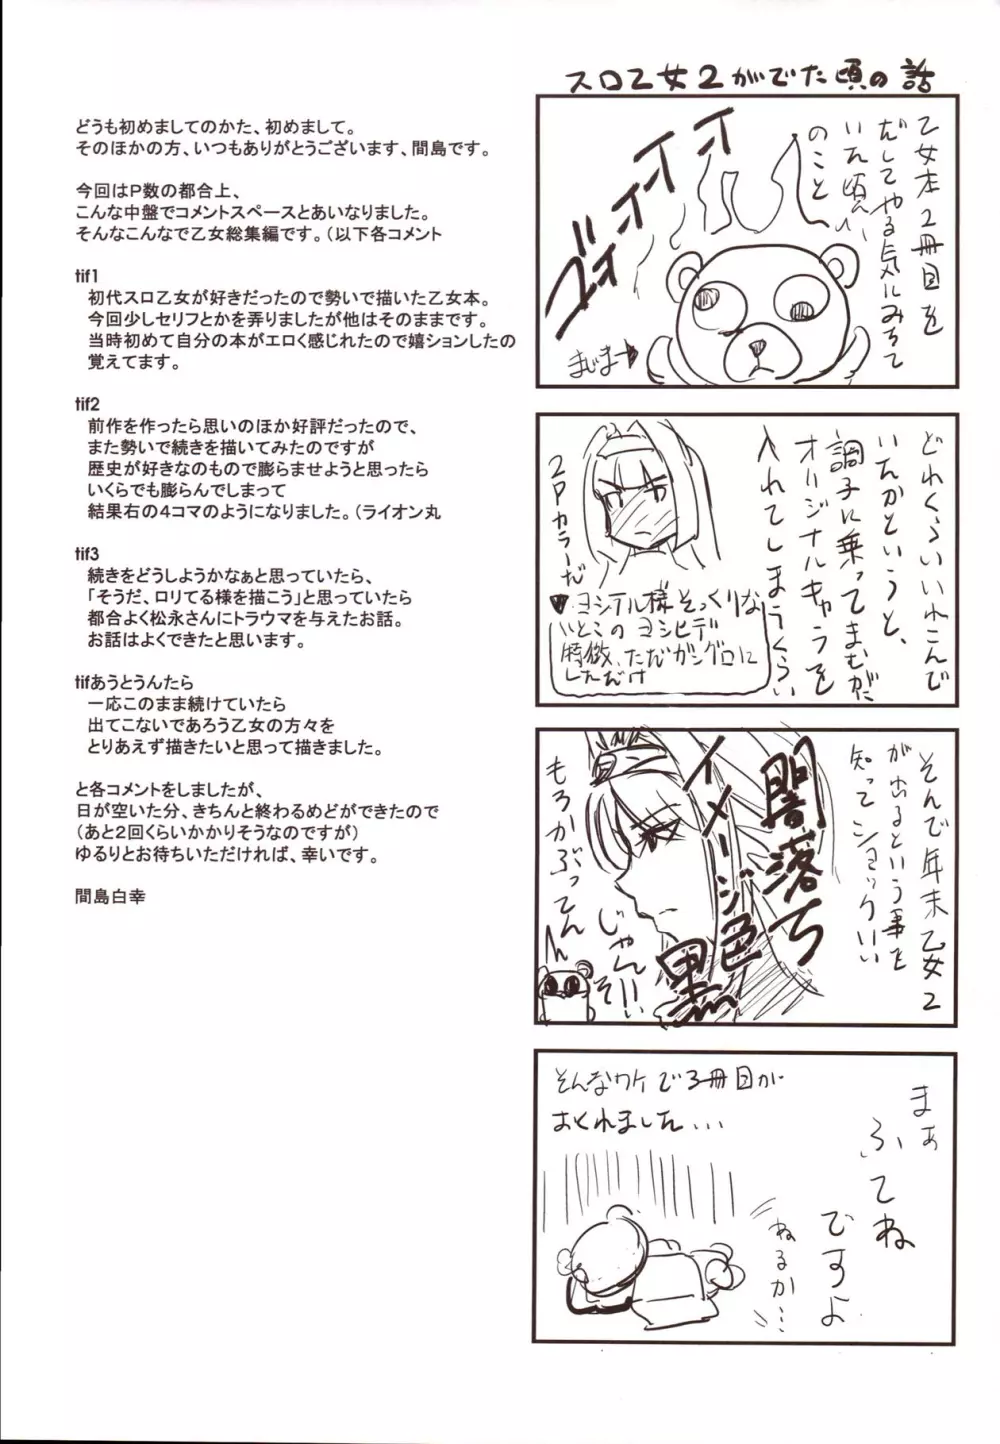 どうも初めましてのかた、初めまして。
そのほかの方、いつもありがとうございます、間島です。
今回はP数の都合上、
こんな中盤でコメントスペースとあいなりました。
そんなこんなで乙女総集編です。(以下各コメント
tif1
初代スロ乙女が好きだったので勢いで描いた乙女本。
今回少しセリフとかを弄りましたが他はそのままです。
当時初めて自分の本がエロく感じれたので嬉ションしたの
覚えてます。
tif2
前作を作ったら思いのほか好評だったので、
また勢いで続きを描いてみたのですが
歴史が好きなのもので膨らませようと思ったら
いくらでも膨らんでしまって
結果右の4コマのようになりました。(ライオン丸
tif3
続きをどうしようかなぁと思っていたら、
「そうだ、ロリてる様を描こう」と思っていたら
都合よく松永さんにトラウマを与えたお話。
お話はよくできたと思います。
tifあうとうんたら
一応このまま続けていたら
出てこないであろう乙女の方々を
とりあえず描きたいと思って描きました。
と各コメントをしましたが、
日が空いた分、きちんと終わるめどができたので
(あと2回くらいかかりそうなのですが)
ゆるりとお待ちいただければ、幸いです。
間島白幸
スロ乙女2がでた頃の話
乙女本2冊目を
だしてやる気にみちて
いた頃
のこと
ズオイオイオイ
まじま→
どれくらいいれこんで
いたかというと、
調子に乗ってまむがだ
オリジナルキャラを
入れてしまうくらい
2Pカラーだ
ヨシテル様そっくりな
いとこのヨシヒデ
特徴、ただガングロに
しただけ
そんで年末乙女2
が出るという事を
知ってショックいい
闇落ち
イメージ色
黒
もろかぶってん
じゃんそい
まぁ
ふてね
ですよ
そんなワケで3冊目が
おくれました...
ねるか…